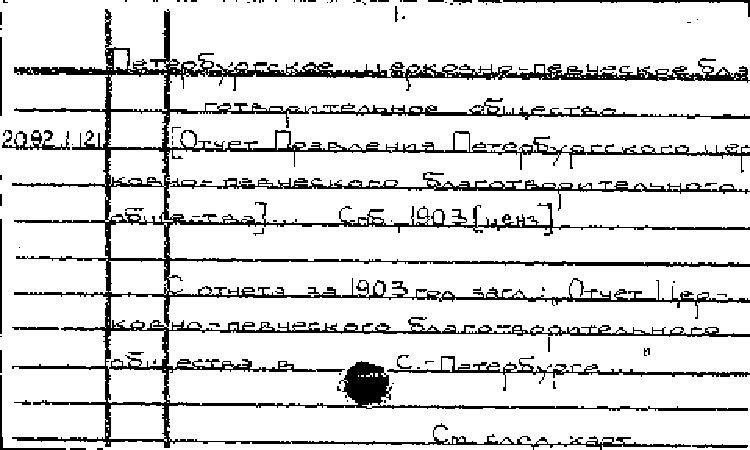 1.
Петербургское церковно-певческое бла
готворительное общество
2092 1121 [Отчет Правления Петербургского цер
ковно-певческого благотворительного
общества]... Спб. 1903 [ценз]
С отчета за 1903 год загл.: „Отчет Цер-
ковно-певческого благотворительного
общества в С.-Петербурге..."
См. след. карт.